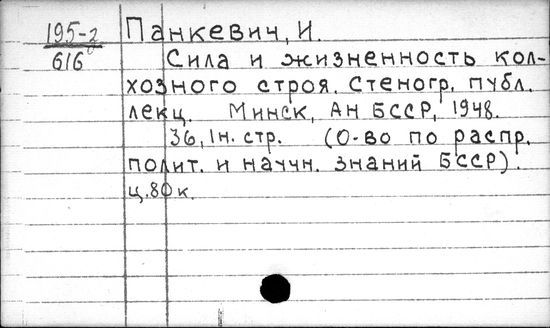 195-2 Панкевич, И.
616 Сила и жизненность кол-
хозного строя. Стеногр. публ.
лекц. Минск, АН БССР, 1948.
36, 1н. стр. (О-во по распр.
полит. и научн. знаний БССР).
ц. 80 к.